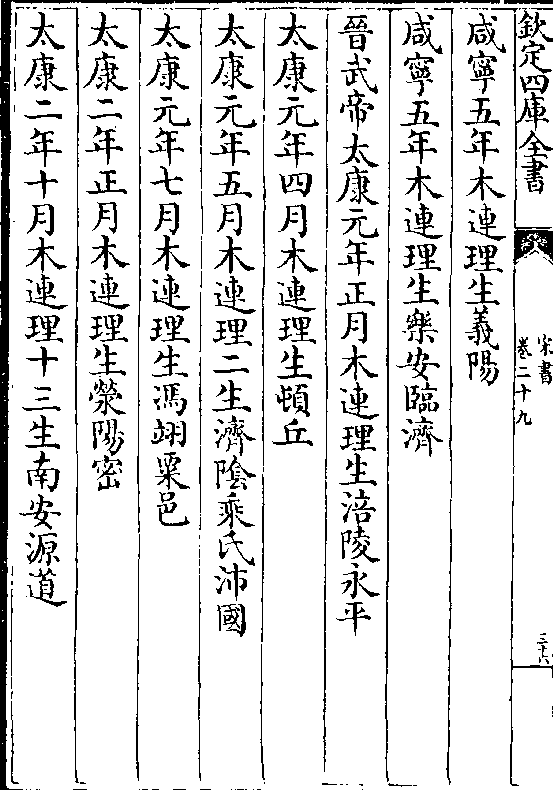 欽定四庫全書
宋書
卷二十九
三十六
咸寧五年木連理生義陽
咸寧五年木連理生樂安臨濟
晉武帝太康元年正月木連理生涪陵永平
太康元年四月木連理生頓丘
太康元年五月木連理二生濟陰乘氏沛國
太康元年七月木連理生馮翊粟邑
太康二年正月木連理生滎陽密
太康二年十月木連理十三生南安源道